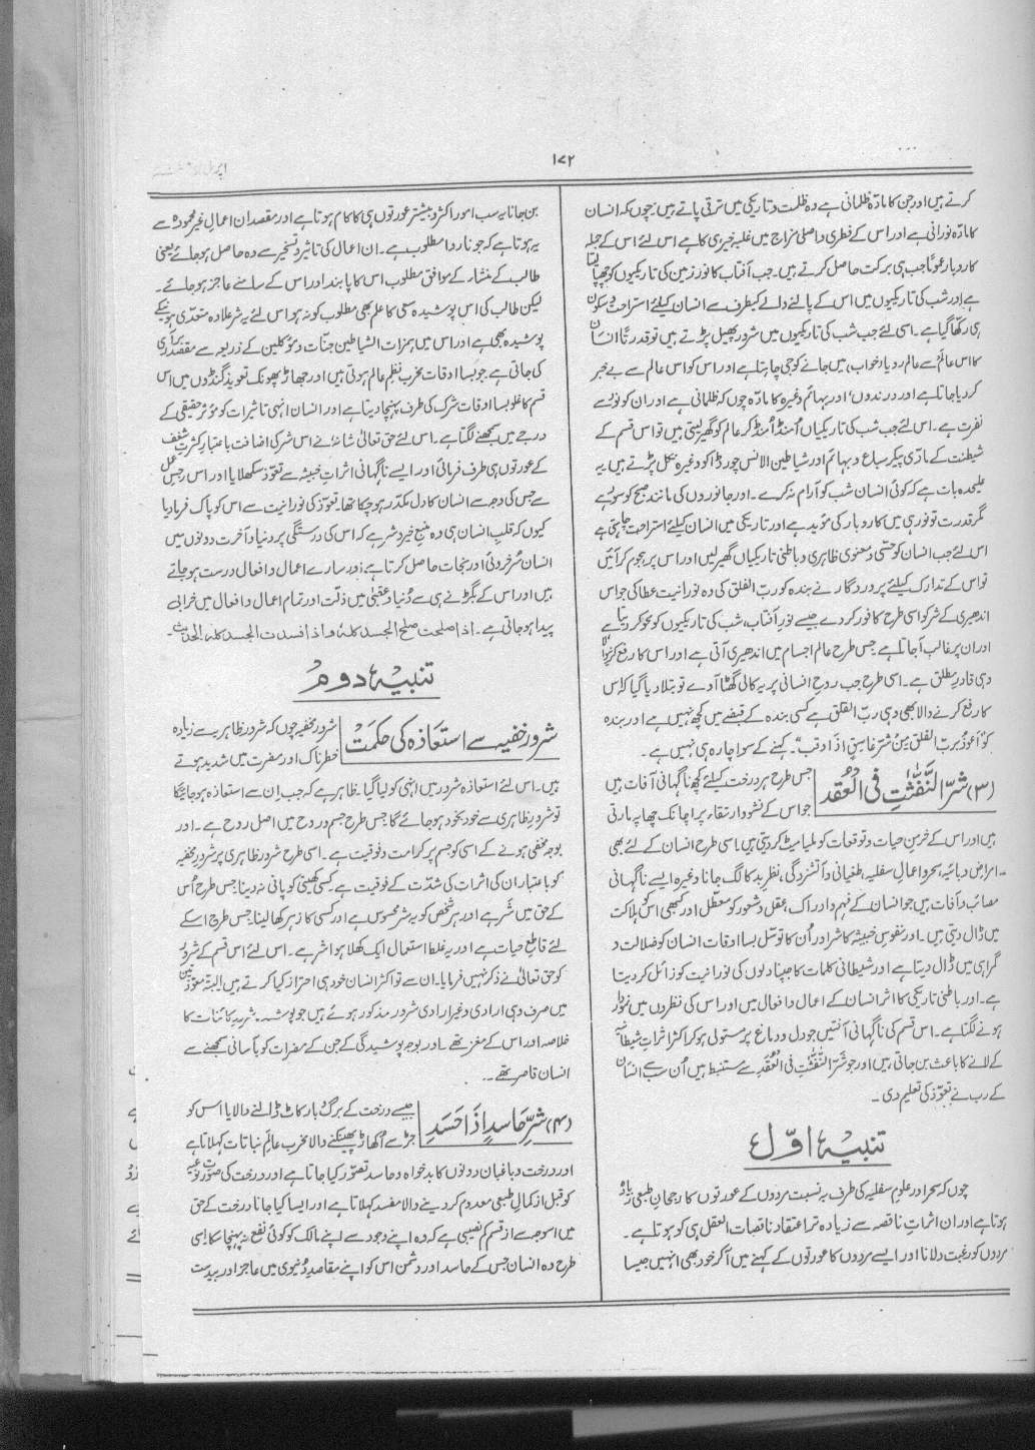 ۱۷۲
کرتے ہیں اور جن کا مادّہ ظلمانی ہے وہ ظلمت و تاریکی میں ترقی پاتے ہیں چوں کہ انسان
کا مادّہ نورانی ہے اور اس کے فطری و اصلی مزاج میں غلبہ خیر ہی کا ہے اس لئے اس کے جملہ
کاروبار عموماً جب ہی برکت حاصل کرتے ہیں۔ جب آفتاب کا نور زمین کی تاریکیوں کو چھپا لیتا
ہے اور شب کی تاریکیوں میں اس کے پالنے والے کیطرف سے انسان کیلئے استراحت و سکون
ہی رکھا گیا ہے۔ اسی لئے جب شب کی تاریکیوں میں شرور پھیل پڑتے ہیں تو قدرتاً انسان
کا اس عالم سے عالم رویا و خواب، میں جانے کو جی چاہتا ہے اور اس کو اس عالم سے بے خبر
کر دیا جاتا ہے اور درندوں، اور بہائم وغیرہ کا مادّہ چوں کہ ظلمانی ہے اور ان کو نور سے
نفرت ہے۔ اس لئے جب شب کی تاریکیاں اُمنڈ اُمنڈ کر عالم کو گھیر لیتی ہیں تو اس قسم کے
شیطنت کے مادّی پیکر سباع و بہائم اور شیاطین الانس چور ڈاکو وغیرہ نکل پڑتے ہیں یہ
علیحدہ بات ہے کہ کوئی انسان شب کو آرام نہ کرے۔ اور جانوروں کی مانند صبح کو سوئے
مگر قدرت تو نور ہی میں کاروبار کی مؤید ہے اور تاریکی میں انسان کیلئے استراحت چاہتی ہے
اس لئے جب انسان کو حسّی و معنوی ظاہری و باطنی تاریکیاں گھیر لیں اور اس پر ہجوم کر آئیں
تو اس کے تدارک کیلئے پروردگار نے بندہ کو ربّ الفلق کی وہ نورانیت عطا کی جو اس
اندھیری کے شر کو اسی طرح کافور کر دے جیسے نورِ آفتاب، شب کی تاریکیوں کو محو کر دیتا ہے
اور ان پر غالب آجاتا ہے جس طرح عالم اجسام میں اندھیری آتی ہے اور اس کا رفع کرنیوالا
وہی قادر مطلق ہے۔ اسی طرح جب روح انسانی پر یہ کالی گھٹا آوے تو بتلا دیا گیا کہ اس
کا رفع کرنے والا بھی وہی ربّ الفلق ہے کسی بندہ کے قبضے میں کچھ نہیں ہے اور بندہ
کو "اعوذ بربّ الفلق مِن شر غاسقٍ اذا وقب"۔ کہنے کے سوا چارہ ہی نہیں ہے۔
(۳) شرّ النَّفّٰثٰتِ فِی الْعُقَد
جس طرح ہر درخت کیلئے کچھ ناگہانی آفات ہیں
جو اس کے نشو و ارتقاء پر اچانک چھاپہ مارتی
ہیں اور اس کے خرمنِ حیات و توقعات کو ملیامیٹ کر دیتی ہیں۔ اسی طرح انسان کے لئے بھی
امراض وبائیہ، سحر و اعمالِ سفلیہ، طغیانی و آتشزدگی، نظرِ بد کا لگ جانا وغیرہ ایسے ناگہانی
مصائب و آفات ہیں جو انسان کے فہم و ادراک، عقل و شعور کو معطّل اور کبھی اس کو ہلاکت
میں ڈال دیتی ہیں۔ اور نفوسِ خبیثہ کا شر اور اُن کا توسّل بسا اوقات انسان کو ضلالت و
گمراہی میں ڈال دیتا ہے اور شیطانی کلمات کا جپنا دلوں کی نورانیت کو زائل کر دیتا
ہے۔ اور باطنی تاریکی کا اثر انسان کے اعمال و افعال میں اور اس کی نظروں میں نمودار
ہونے لگتا ہے۔ اس قسم کی ناگہانی آفتیں جو دل و دماغ پر مستولی ہو کر اکثر اثراتِ شیطانیہ
کے لانے کا باعث بن جاتی ہیں اور جو شَرِّ النَّفّٰثٰتِ فِی الْعُقَدِ سے مستنبط ہیں اُن سے انسان
کے رب نے تعوّذ کی تعلیم دی۔
تنبیہ اوّل
چوں کہ سحر اور علوم سفلیہ کی طرف بہ نسبت مردوں کے عورتوں کا رجحانِ طبعی زیادہ
ہوتا ہے اور ان اثراتِ ناقصہ سے زیادہ تر اعتقاد ناقصات العقل ہی کو ہوتا ہے۔
مردوں کو رغبت دلانا اور ایسے مردوں کا عورتوں کے کہنے میں آکر خود بھی انہیں جیسا
بن جانا یہ سب امور اکثر و بیشتر عورتوں ہی کا کام ہوتا ہے اور مقصد ان اعمالِ غیر محمودہ سے
یہ ہوتا ہے کہ جو ناروا مطلوب ہے۔ ان اعمال کی تاثیر و تسخیر سے وہ حاصل ہو جائے یعنی
طالب کے منشار کے موافق مطلوب اس کا پابند اور اس کے سامنے عاجز ہو جائے۔
لیکن طالب کی اس پوشیدہ سعی کا علم بھی مطلوب کو نہ ہو اس لئے یہ شر علاوہ متعدّی ہونیکے
پوشیدہ بھی ہے اور اس میں ہمزات الشیاطین جنّات و مؤکلین کے ذریعہ سے مقصد برآری
کی جاتی ہے جو بسا اوقات مخرب نظمِ عالم ہوتی ہیں اور جھاڑ پھونک تعویذ گنڈوں میں اس
قسم کا غلو بسا اوقات شرک کی طرف پہنچا دیتا ہے اور انسان انہی تاثیرات کو مؤثر حقیقی کے
درجے میں سمجھنے لگتا ہے۔ اس لئے حق تعالیٰ شانہٗ نے اس شر کی اضافت باعتبار کثرتِ شغف
کے عورتوں ہی طرف فرمائی اور ایسے ناگہانی اثراتِ خبیثہ سے تعوّذ سکھلایا اور اس رجس عمل
سے جس کی وجہ سے انسان کا دل مکدّر ہو چکا تھا۔ تعوّذ کی نورانیت سے اس کو پاک فرما دیا
کیوں کہ قلبِ انسان ہی وہ منبعِ خیر و شر ہے کہ اس کی درستگی پر دنیا و آخرت دونوں میں
انسان سُرخروئی اور نجات حاصل کرتا ہے، اور سارے اعمال و افعال درست ہو جاتے
ہیں اور اس کے بگڑنے ہی سے دُنیا و عقبیٰ میں ذلّت اور تمام اعمال و افعال میں خرابی
پیدا ہو جاتی ہے۔ اذا صلحت صلح الجسد کلہٗ واذا فسدت الجسد کلہ الحدیث۔
تنبیہ دوم
شرور خفیہ سے استعاذہ کی حکمت
شرورِ مخفیہ چوں کہ شرورِ ظاہریہ سے زیادہ
خطرناک اور مضرت میں شدید ہوتے
ہیں۔ اس لئے استعاذہ شرور میں انہی کو لیا گیا۔ ظاہر ہے کہ جب اِن سے استعاذہ ہو جائیگا
تو شرورِ ظاہری سے خود بخود ہو جائے گا جس طرح جسم و روح میں اصل روح ہے۔ اور
بوجہ مخفی ہونے کے اسی کو جسم پر کرامت و فوقیت ہے۔ اسی طرح شرورِ ظاہری پر شرورِ مخفیہ
کو باعتبار ان کی اثرات کی شدّت کے فوقیت ہے۔ کسی کھیتی کو پانی نہ دینا جس طرح اُس
کے حق میں شر ہے اور ہر شخص کو یہ شر محسوس ہے اور کسی کا زہر کھا لینا جس طرح اسکے
لئے قاطع حیات ہے اور یہ غلط استعمال ایک کھلا ہوا شر ہے۔ اس لئے اس قسم کے شرور
کو حق تعالیٰ نے ذکر نہیں فرمایا۔ ان سے تو اکثر انسان خود ہی احتراز کیا کرتے ہیں البتہ معوّذتین
میں صرف وہی ارادی و غیر ارادی شرور مذکور ہوئے ہیں جو پوشیدہ۔ شریرِ کائنات کا
خلاصہ اور اس کے مغز تھے۔ اور بوجہ پوشیدگی کے جن کے مضرات کو بآسانی سمجھنے سے
انسان قاصر تھے۔
(۴) شرِّ حَاسِدٍ اِذَا حَسَدَ
جیسے درخت کے برگ و بار کاٹ ڈالنے والا یا اس کو
جڑ سے اُکھاڑ پھینکنے والا مخرب عالمِ نباتات کہلاتا ہے
اور درخت و باغبان دونوں کا بدخواہ و حاسد تصوّر کیا جاتا ہے اور درخت کی صورتِ نوعیہ
کو قبل از کمالِ طبعی معدوم کر دینے والا مفسد کہلاتا ہے اور ایسا کیا جانا درخت کے حق
میں اسوجہ سے از قسم کم نصیبی ہے کہ وہ اپنے وجود سے اپنے مالک کو کوئی نفع نہ پہنچا سکا اسی
طرح وہ انسان جس کے حاسد اور دشمن اس کو اپنے مقاصدِ دُنیوی میں عاجز اور بے دست